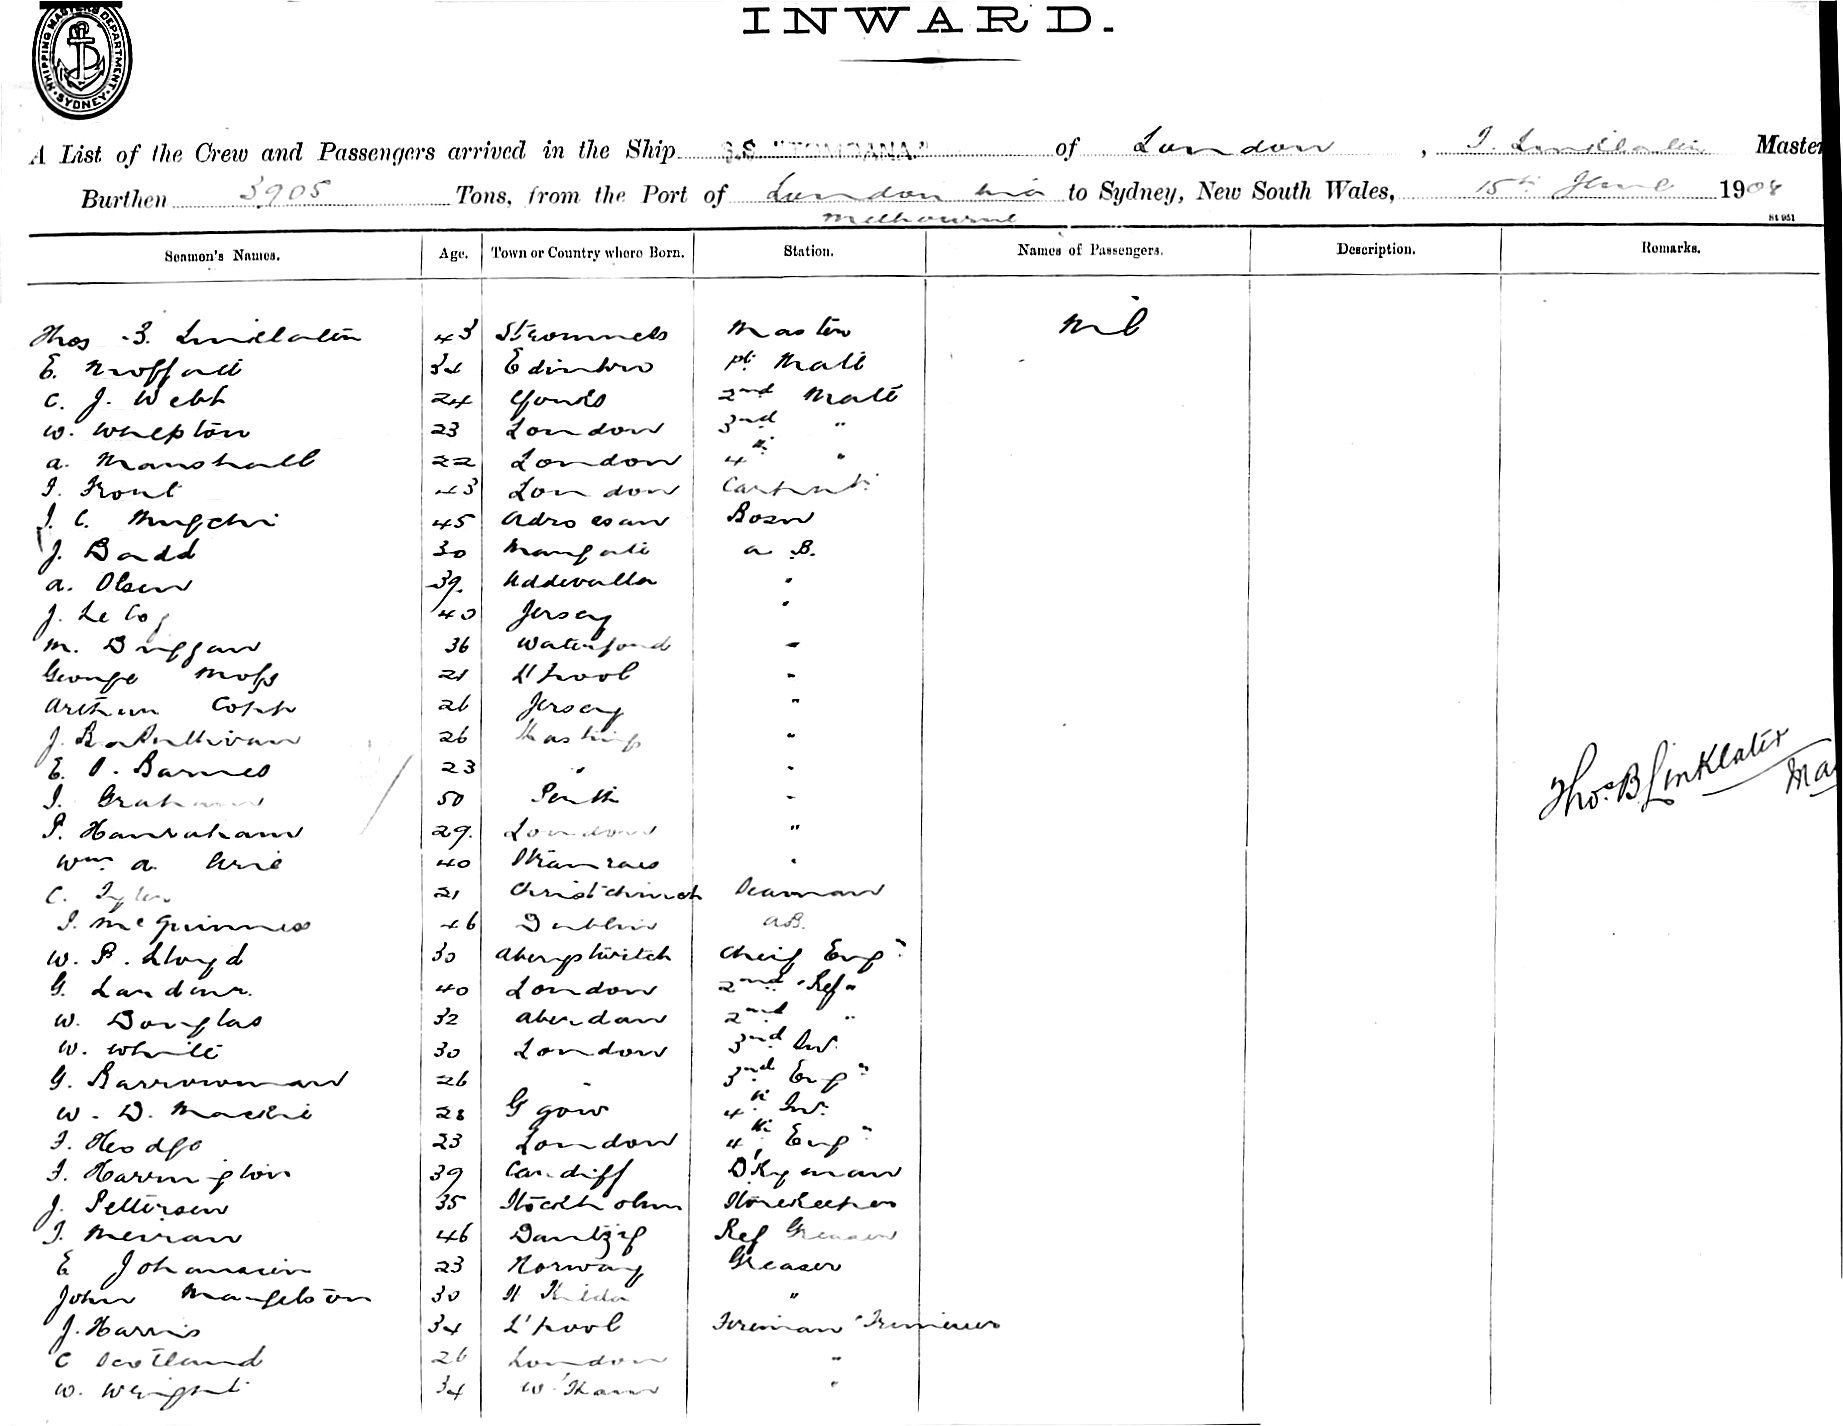 INWARD.
SHIPPING MASTERS DEPARTMENT. SYDNEY.
A List of the Crew and Passengers arrived in the Ship S.S of London, Master
Burthen 3905 Tons, from the Port of London via to Sydney, New South Wales, 15th June 1908
Melbourne
Seamen's Names. Age. Town or Country where Born. Station. Names of Passengers. Description. Remarks.
Thos B. Linklater 43 Master Nil
E. Moffatt 34 Edinbro Mate
C. J. Webb 24 2nd Mate
W. Whepton 23 London 3rd "
A. Marshall 22 London 4th "
43 London
J. C. 45 Bosn
J. Dadd 30 A. B.
A. Olsen 39 Uddevalla "
J. Le Coq 40 Jersey "
M. Driggan 36 Waterford "
George Moss 21 L'pool "
Arthur Cobb 26 Jersey "
J. 26 Hastings "
E. Barnes 23 " "
Graham 50 Perth "
P. Hanrahan 29 London "
Wm A. 40 Stranraer "
C. Tyler 21 Christchurch Seaman
McGuinness 46 Dublin A.B.
W. P. Lloyd 30 Aberystwitch Cheif Eng"
G. 40 London 2nd Ref "
W. Douglas 32 2nd "
W. White 30 London 3rd
G. Barrowman 26 " 3rd Eng"
W. D. Mackie 28 G'gow 4th
Hodge 23 London 4th Eng"
Harrington 39 Cardiff D'kyman
J. Pettersen 35 Stockholm Storekeeper
46 Dantzig Ref Greaser
E Johansen 23 Norway Greaser
John 30 St Kilda "
J. Harris 34 L'pool Fireman Trimmer
C Scotland 26 London "
W. Wright 34 W'Ham "
Thos. B. Linklater